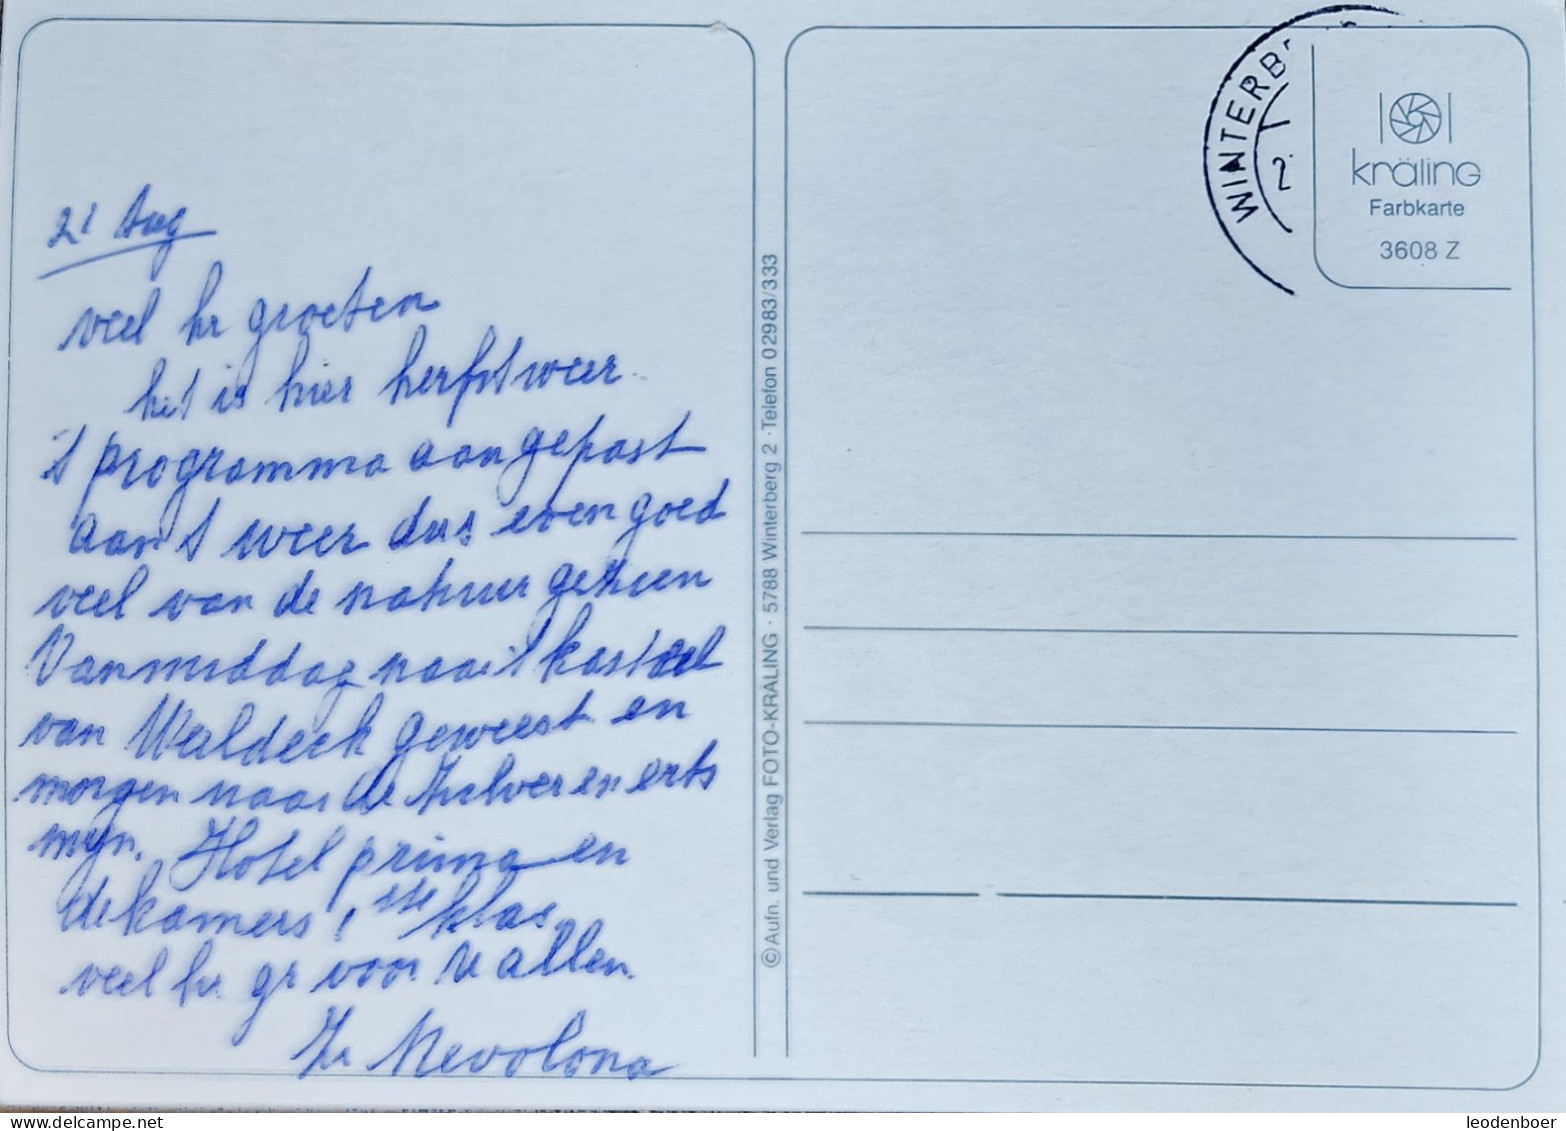 21 Aug
veel hr groeten
het is hier herfstweer.
't programma aangepast
aan 't weer dus even goed
veel van de natuur gezien
Vanmiddag naar 't kasteel
van Waldeck geweest en
morgen naar de zilver en erts
mijn. Hotel prima en
de kamers 1ste klas
veel hr gr voor U allen.
Zr Nevolona
©Aufn. und Verlag FOTO-KRÄLING · 5788 Winterberg 2 · Telefon 02983/333
WINTERB
2
kräling
Farbkarte
3608 Z
www.delcampe.net
leodenboer